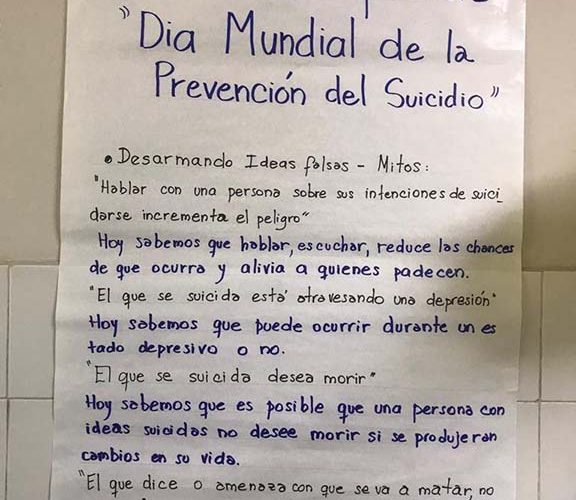 "Dia Mundial de la
Prevención del Suicidio"
• Desarmando Ideas falsas - Mitos:
"Hablar con una persona sobre sus intenciones de suici_
darse incrementa el peligro"
Hoy sabemos que hablar, escuchar, reduce las chances
de que ocurra y alivia a quienes padecen.
"El que se suicida está atravesando una depresión"
Hoy sabemos que puede ocurrir durante un es
tado depresivo o no.
"El que se suicida desea morir"
Hoy sabemos que es posible que una persona con
ideas suicidas no desee morir si se produjeran
cambios en su vida.
"El que dice o amenaza con que se va a matar, no